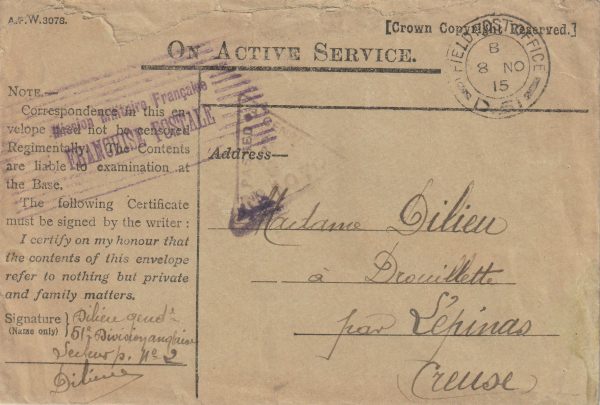 A.F.W.3078.
[Crown Copyright Reserved.]
ON ACTIVE SERVICE.
FIELD POST OFFICE
B
8 NO
15
NOTE.—
Correspondence in this en-
velope need not be censored
Regimentally. The Contents
are liable to examination at
the Base.
The following Certificate
must be signed by the writer :
I certify on my honour that
the contents of this envelope
refer to nothing but private
and family matters.
Signature
(Name only)
Dilieu gend
51e Division anglaise
Secteur p. No 2
Dilieu
Militaire Française
FRANCHISE POSTALE
Address—
Madame Dilieu
à Drouillette
par Lépinas
Creuse